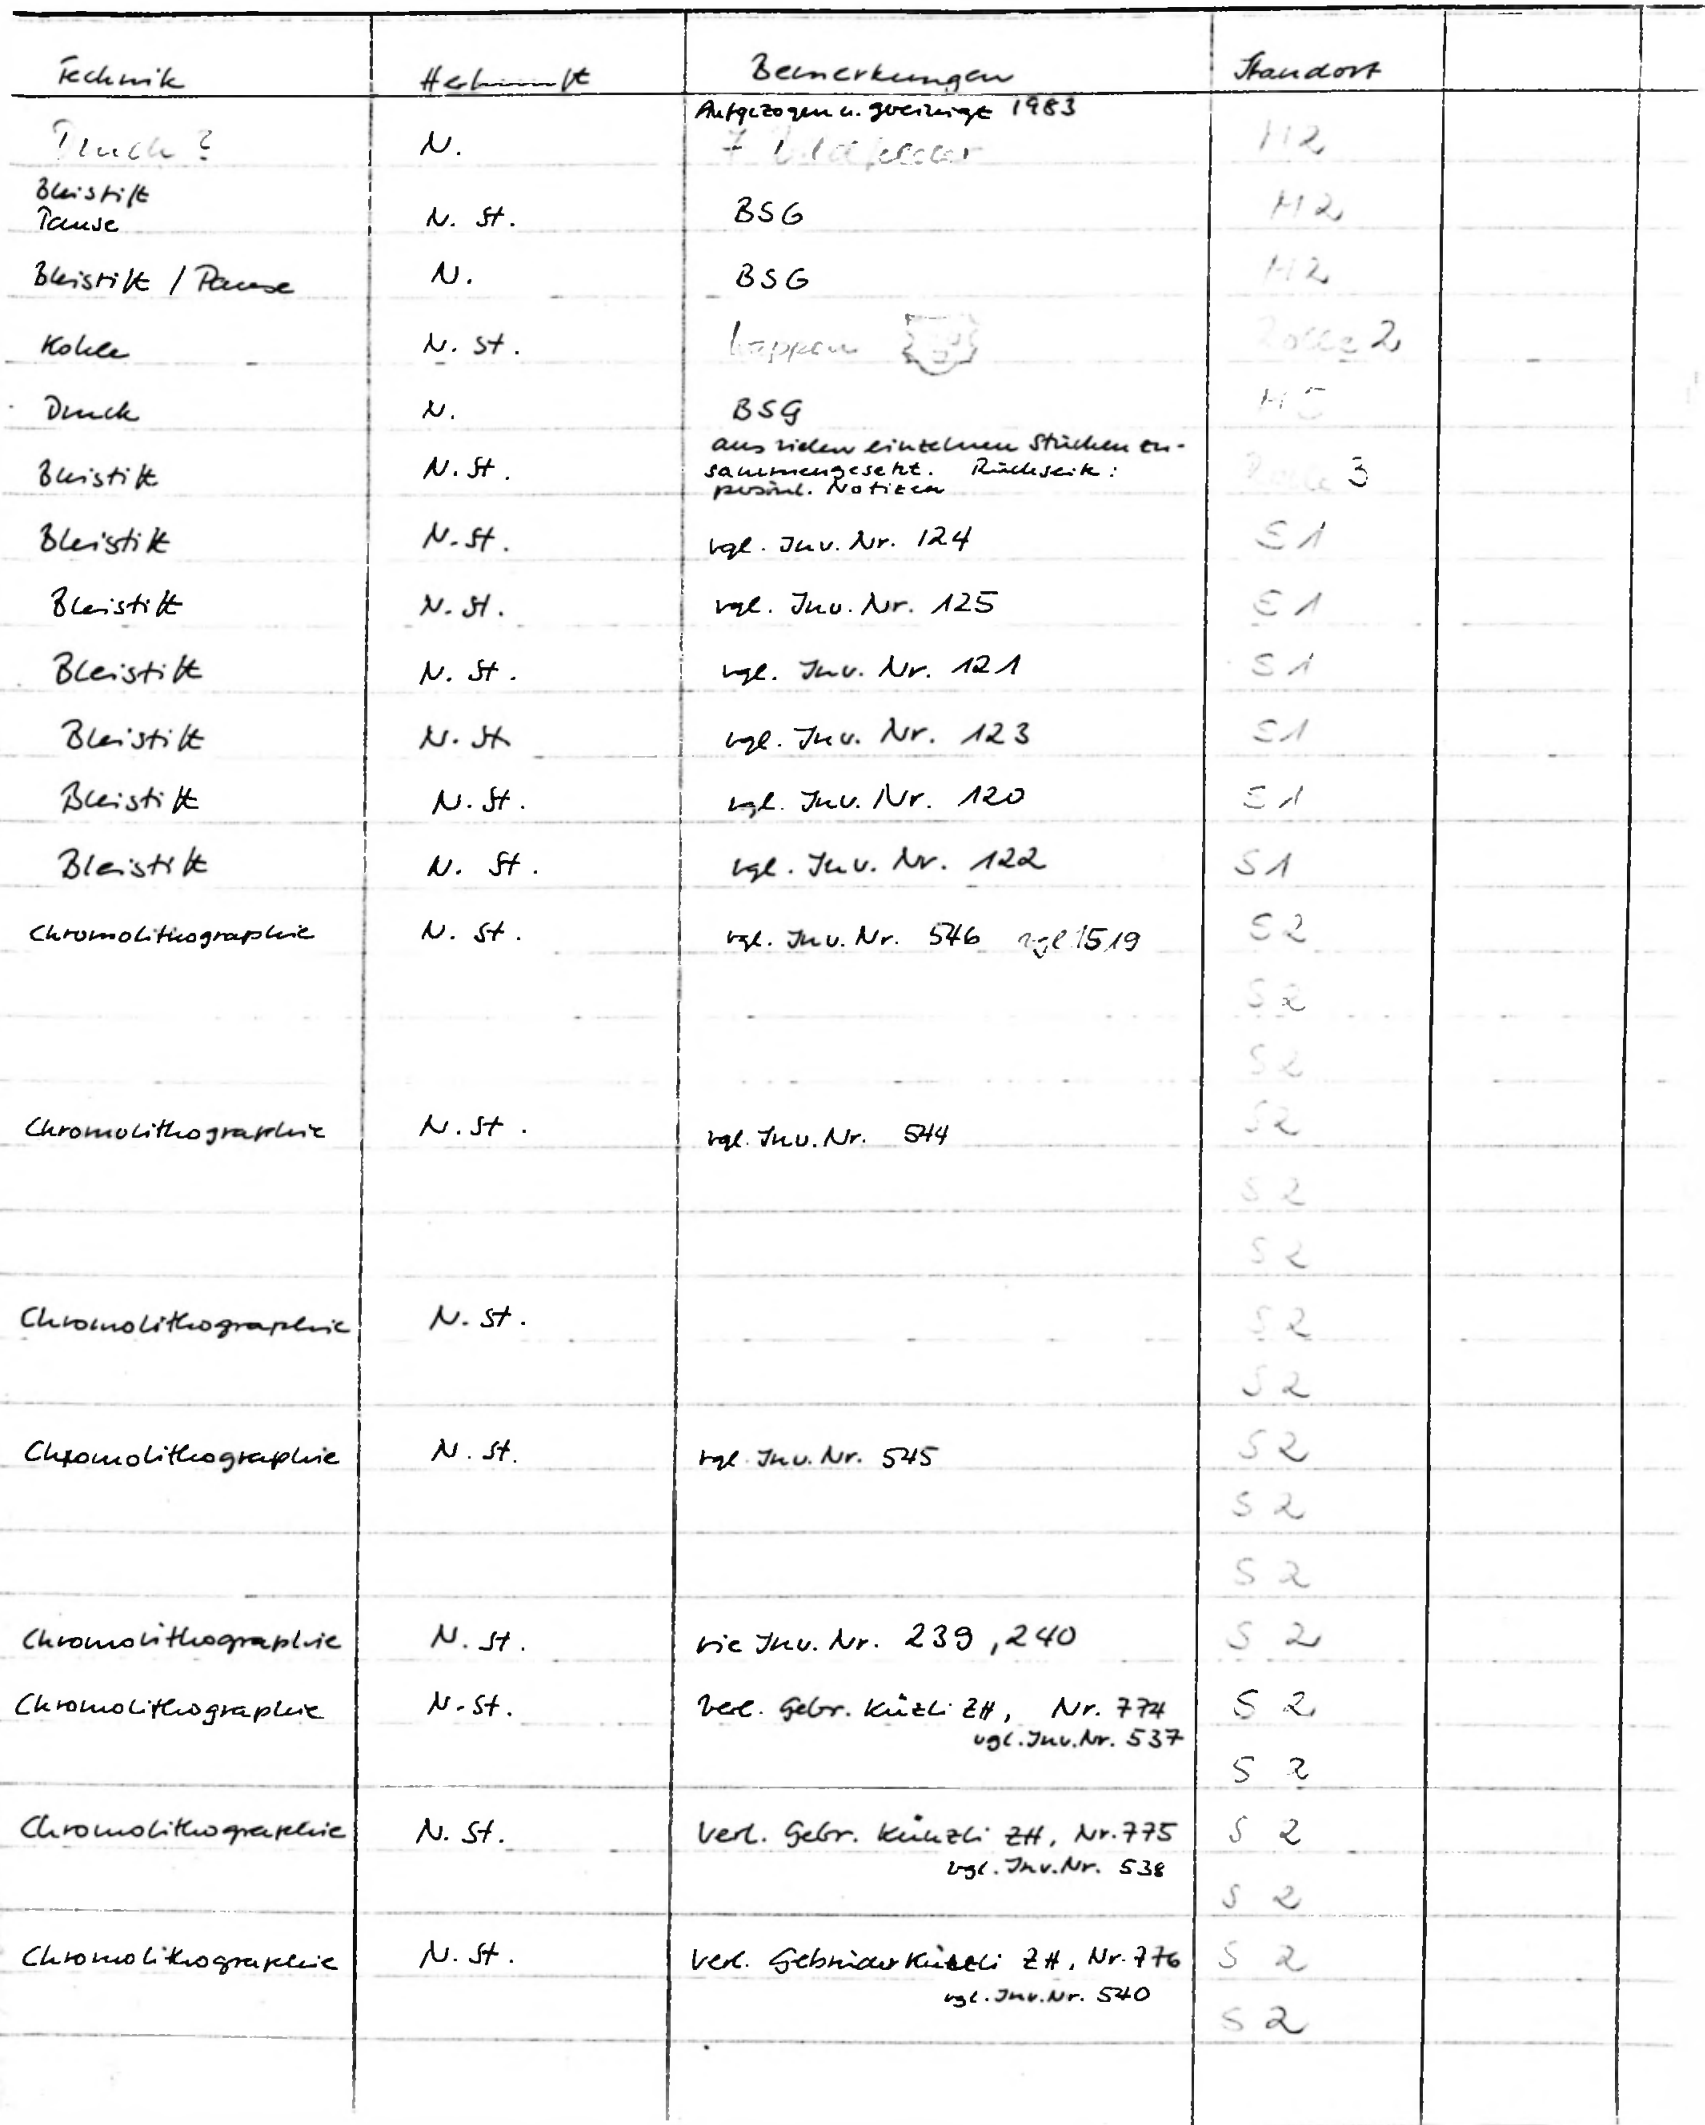 Technik Herkunft Bemerkungen Standort
Aufgezogen u. gereinigt 1983
Druck ? N. 7 Bildfelder H2
Bleistift
Pause N. St. BSG H2
Bleistift / Pause N. BSG H2
Kohle N. St. Wappen Rolle 2
Druck N. BSG H5
aus vielen einzelnen Stücken zu-
Bleistift N. St. sammengesetzt. Rückseite: Rolle 3
persönl. Notizen
Bleistift N. St. vgl. Inv. Nr. 124 S1
Bleistift N. St. vgl. Inv. Nr. 125 S1
Bleistift N. St. vgl. Inv. Nr. 121 S1
Bleistift N. St. vgl. Inv. Nr. 123 S1
Bleistift N. St. vgl. Inv. Nr. 120 S1
Bleistift N. St. vgl. Inv. Nr. 122 S1
Chromolithographie N. St. vgl. Inv. Nr. 546 vgl. 1519 S2
S2
S2
Chromolithographie N. St. vgl. Inv. Nr. 544 S2
S2
S2
Chromolithographie N. St. S2
S2
Chromolithographie N. St. vgl. Inv. Nr. 545 S2
S2
S2
Chromolithographie N. St. wie Inv. Nr. 239, 240 S2
Chromolithographie N. St. Verl. Gebr. Küzli ZH, Nr. 774 S2
vgl. Inv. Nr. 537
S2
Chromolithographie N. St. Verl. Gebr. Künzli ZH, Nr. 775 S2
vgl. Inv. Nr. 538
S2
Chromolithographie N. St. Verl. Gebrüder Künzli ZH, Nr. 776 S2
vgl. Inv. Nr. 540
S2